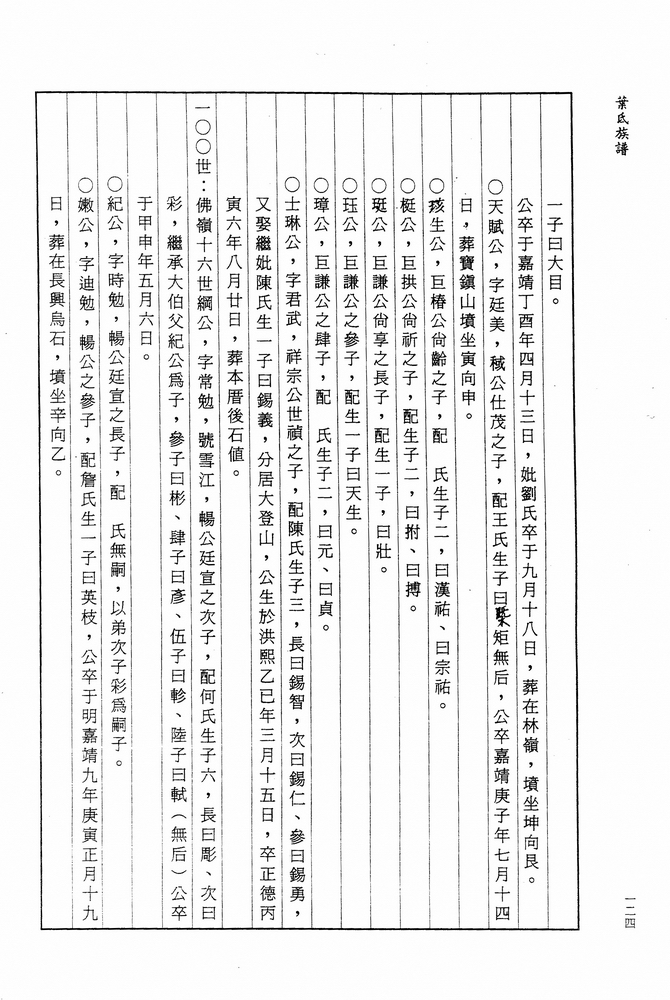 葉氏族譜
一子曰大目。
公卒于嘉靖丁酉年四月十三日，妣劉氏卒于九月十八日，葬在林嶺，墳坐坤向艮。
○天賦公，字廷美，棫公仕茂之子，配王氏生子曰矩無后，公卒嘉靖庚子年七月十四
日，葬寶鎭山墳坐寅向申。
○孩生公，巨椿公尙齡之子，配　氏生子二，曰漢祐、曰宗祐。
○梃公，巨拱公尙祈之子，配生子二，曰拊、曰搏。
○珽公，巨謙公尙享之長子，配生一子，曰壯。
○珏公，巨謙公之參子，配生一子曰天生。
○璋公，巨謙公之肆子，配　氏生子二，曰元、曰貞。
○士琳公，字君武，祥宗公世禎之子，配陳氏生子三，長曰錫智，次曰錫仁、參曰錫勇，
又娶繼妣陳氏生一子曰錫義，分居大登山，公生於洪熙乙已年三月十五日，卒正德丙
寅六年八月廿日，葬本厝後石値。
一○○世：佛嶺十六世綱公，字常勉，號雪江，暢公廷宣之次子，配何氏生子六，長曰彫、次曰
彩，繼承大伯父紀公爲子，參子曰彬、肆子曰彥、伍子曰軫、陸子曰軾（無后）公卒
于甲申年五月六日。
○紀公，字時勉，暢公廷宣之長子，配　氏無嗣，以弟次子彩爲嗣子。
○嫩公，字迪勉，暢公之參子，配詹氏生一子曰英枝，公卒于明嘉靖九年庚寅正月十九
日，葬在長興烏石，墳坐辛向乙。
一二四